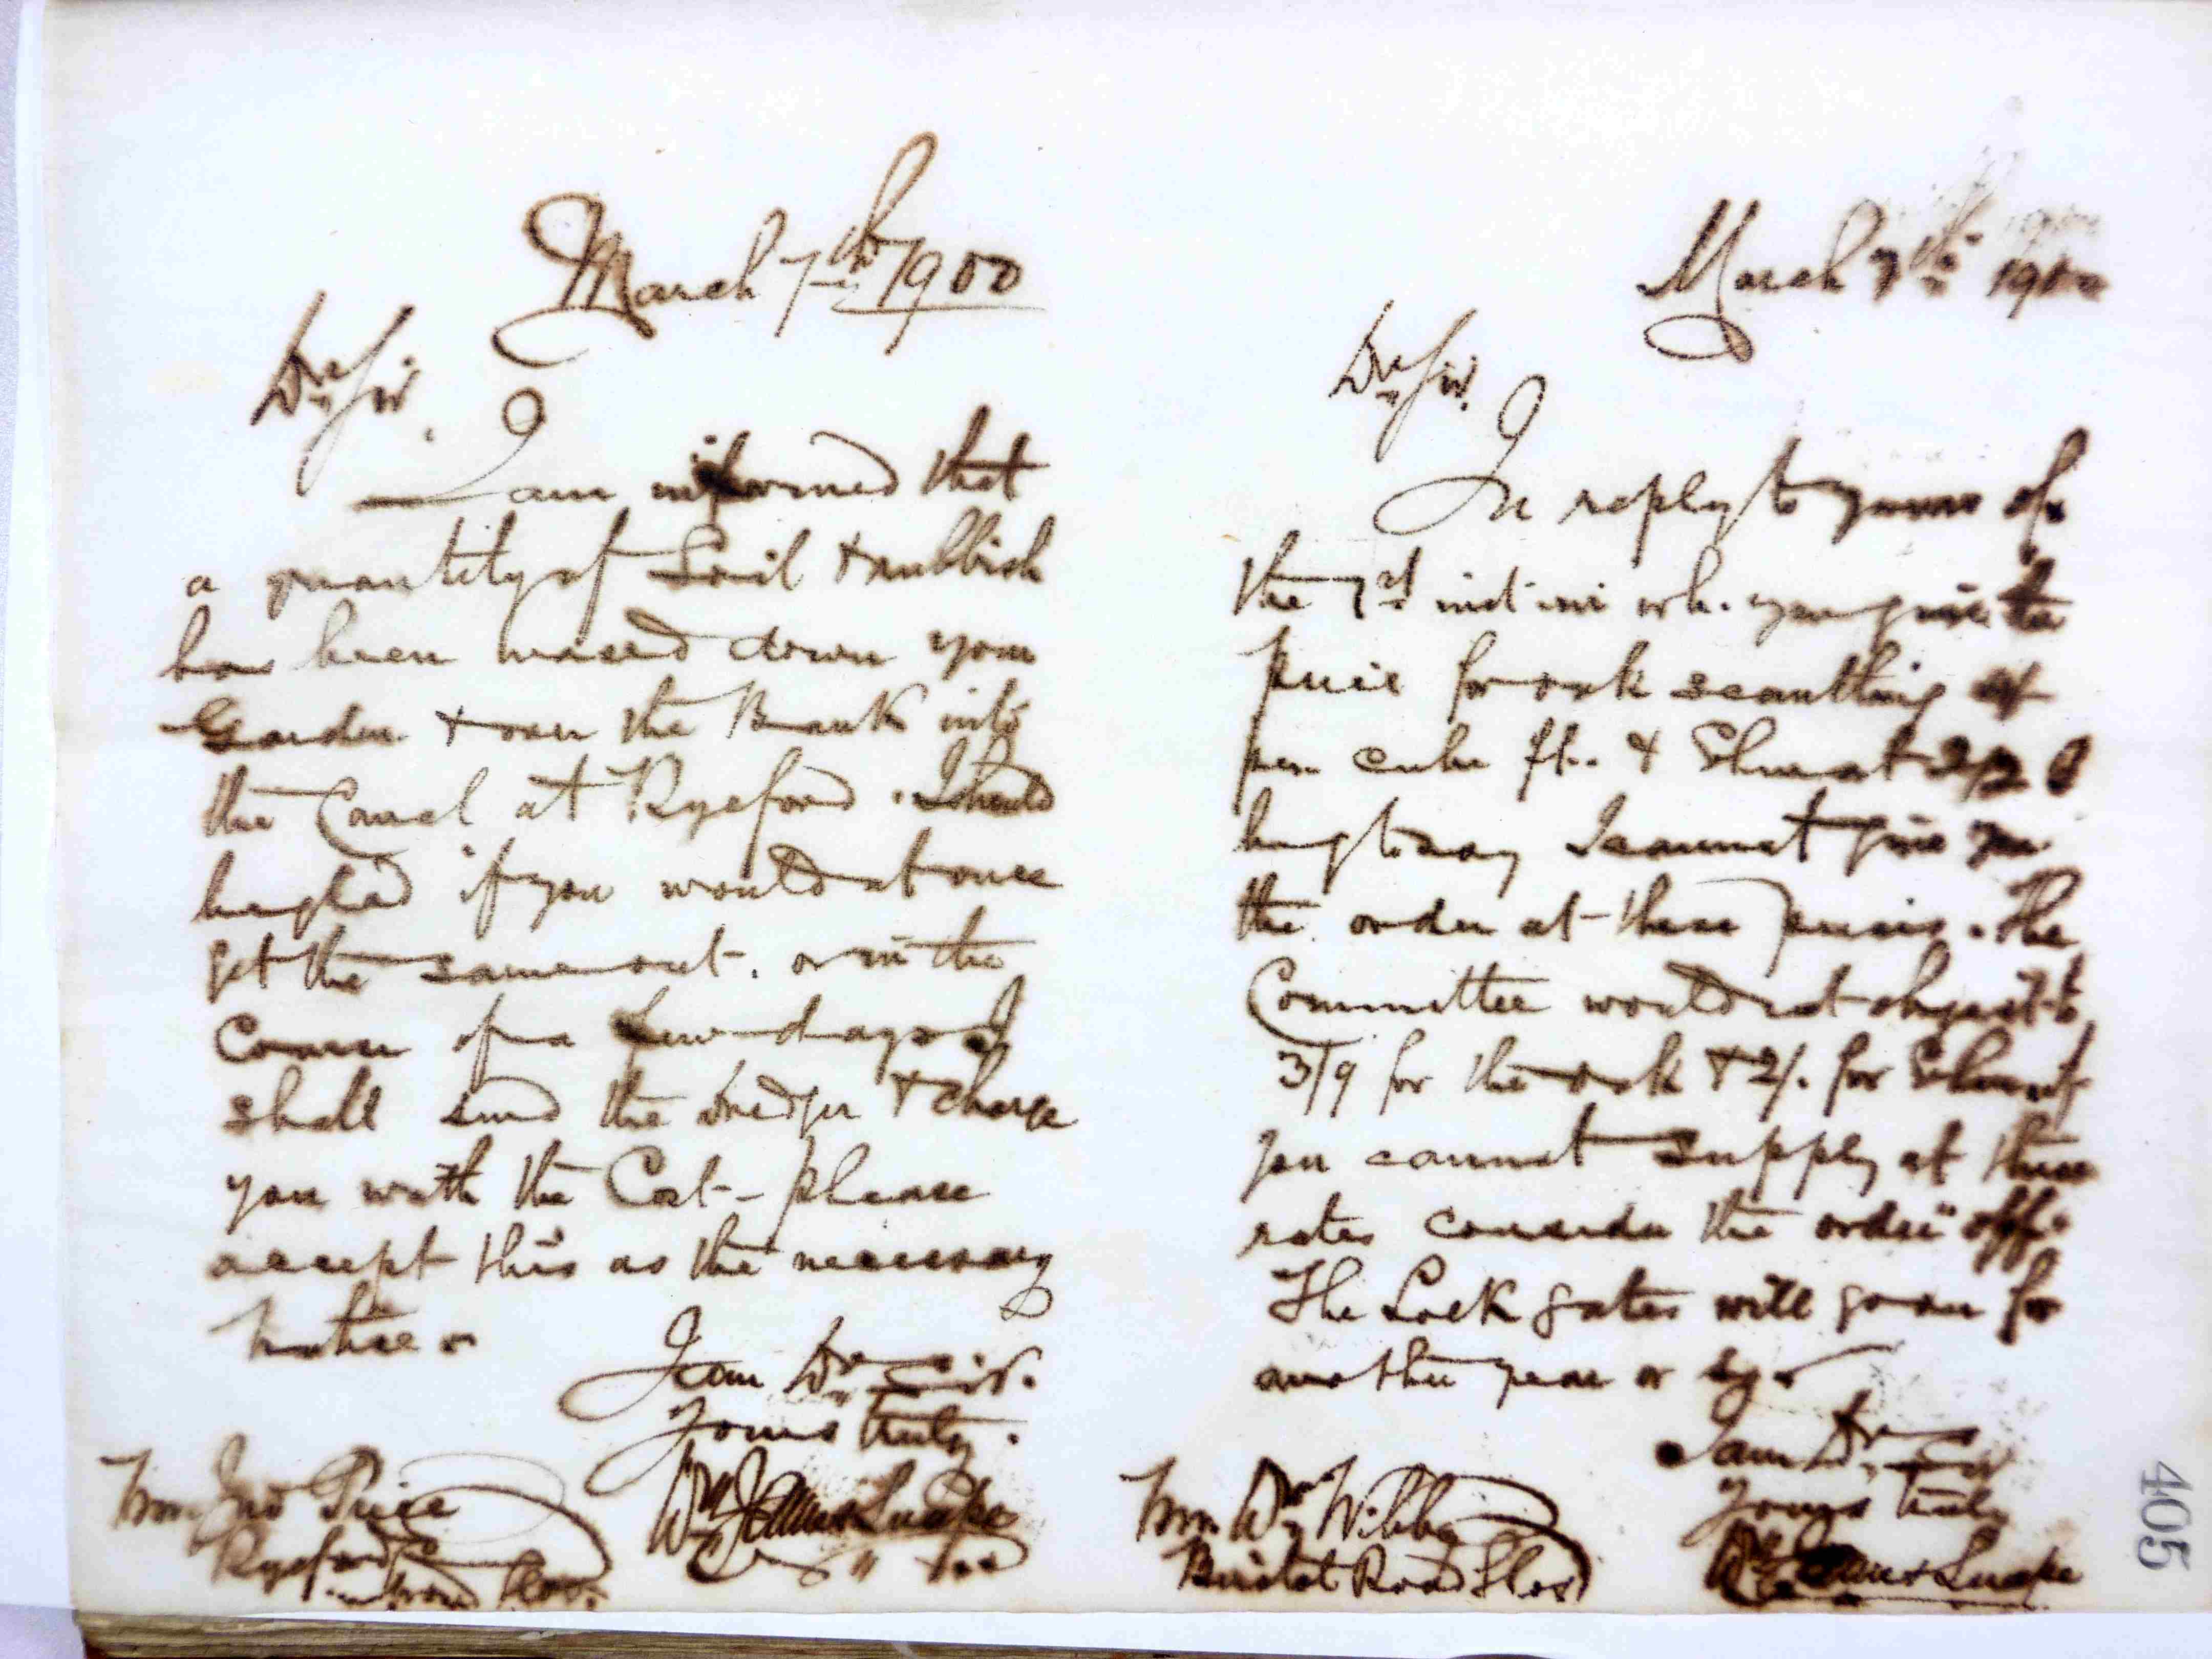 March 7th 1900
Dr Sir,
I am informed that
a quantity of Soil & rubbish
has been washed down your
Garden & over the Bank into
the Canal at Ryeford. I should
be glad if you would at once
get the same out. or in the
Course of a few days I
shall send the dredger & charge
you with the Cost - please
accept this as the necessary
notice
I am Dr Sir.
Yours truly.
Wm James Snape
Mr Jno Price
Ryeford
March 7th 1900
Dr Sir.
In reply to yours of
the 7st inst in wh. you give the
price for oak scantling at
per cube ft. & Elm at 2/2 I
beg to say I cannot give you
the order at these prices. The
Committee would not object to
3/9 for the oak & 2/. for Elm if
you cannot supply at these
rates consider the order "off"
The Lock gates will go on for
another year or so
I am Dr Sir
Yours truly
Wm James Snape
Mr. Wm Wibby
Bristol Road Glos
405